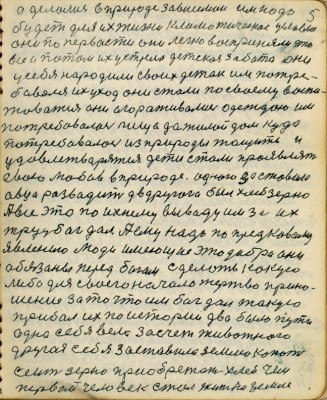 а деломя в природе зависими им надо 5
будет для их жизни климотическое условие
они по первости они легко восприняли это
все и потом их устрия детская забота они
у себя народили своих деток им потре-
бовался их уход они стали по своему воспи-
товатся они сгораживали одеждою им
потребовалась пища да жилой дом куда
потребовалося из природы тащить и
удовлетваряться дети стали проявлять
свою любов в природе. одного заставило
овца развадить а другого был хлеб зерно
А все это по ихнему вываду им за их
труд бог дал А ему надо по предковому
явлению люди имеющие это добро они
обязаны перед богом сделоть какую
либо для своего начало жертво прино-
шение за то что им бог дал такую
прибал их по истории два было пути
одна себя вела за счет животного
другая себя заставила землю копать
сеит зерно приобретать хлеб чем
первый человек стал жит на земле